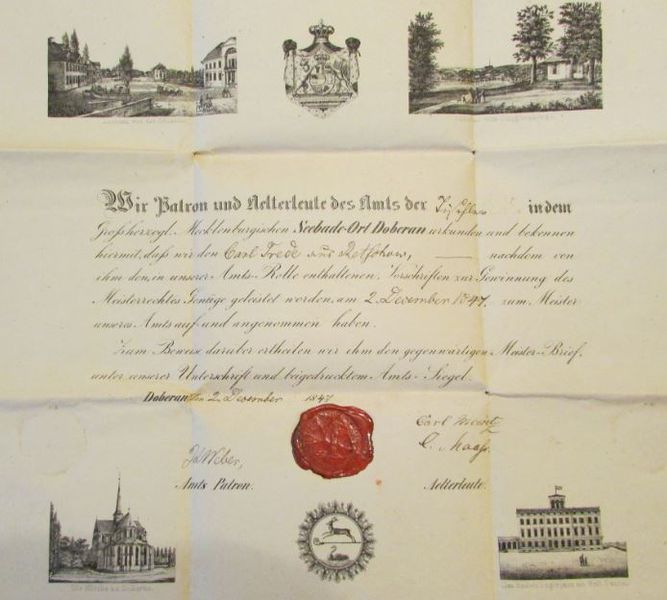 Wir Patron und Aelterleute des Amts der Tischler in dem
Großherzogl. Mecklenburgischen Seebade-Ort Doberan urkunden und bekennen
hiermit, daß wir den Carl Frede aus Retschow, nachdem von
ihm den, in unserer Amts-Rolle enthaltenen, Vorschriften zur Gewinnung des
Meisterrechtes Genüge geleistet worden, am 2. December 1847. zum Meister
unseres Amts auf-und angenommen haben.
Zum Beweise darüber ertheilen wir ihm den gegenwärtigen Meister-Brief,
unter unserer Unterschrift und beigedrucktem Amts-Siegel.
Doberan, den 2. December 1847
Carl
Weber,
C. Maaß.
Amts Patron.
Aelterleute.
Die Kirche zu Doberan.